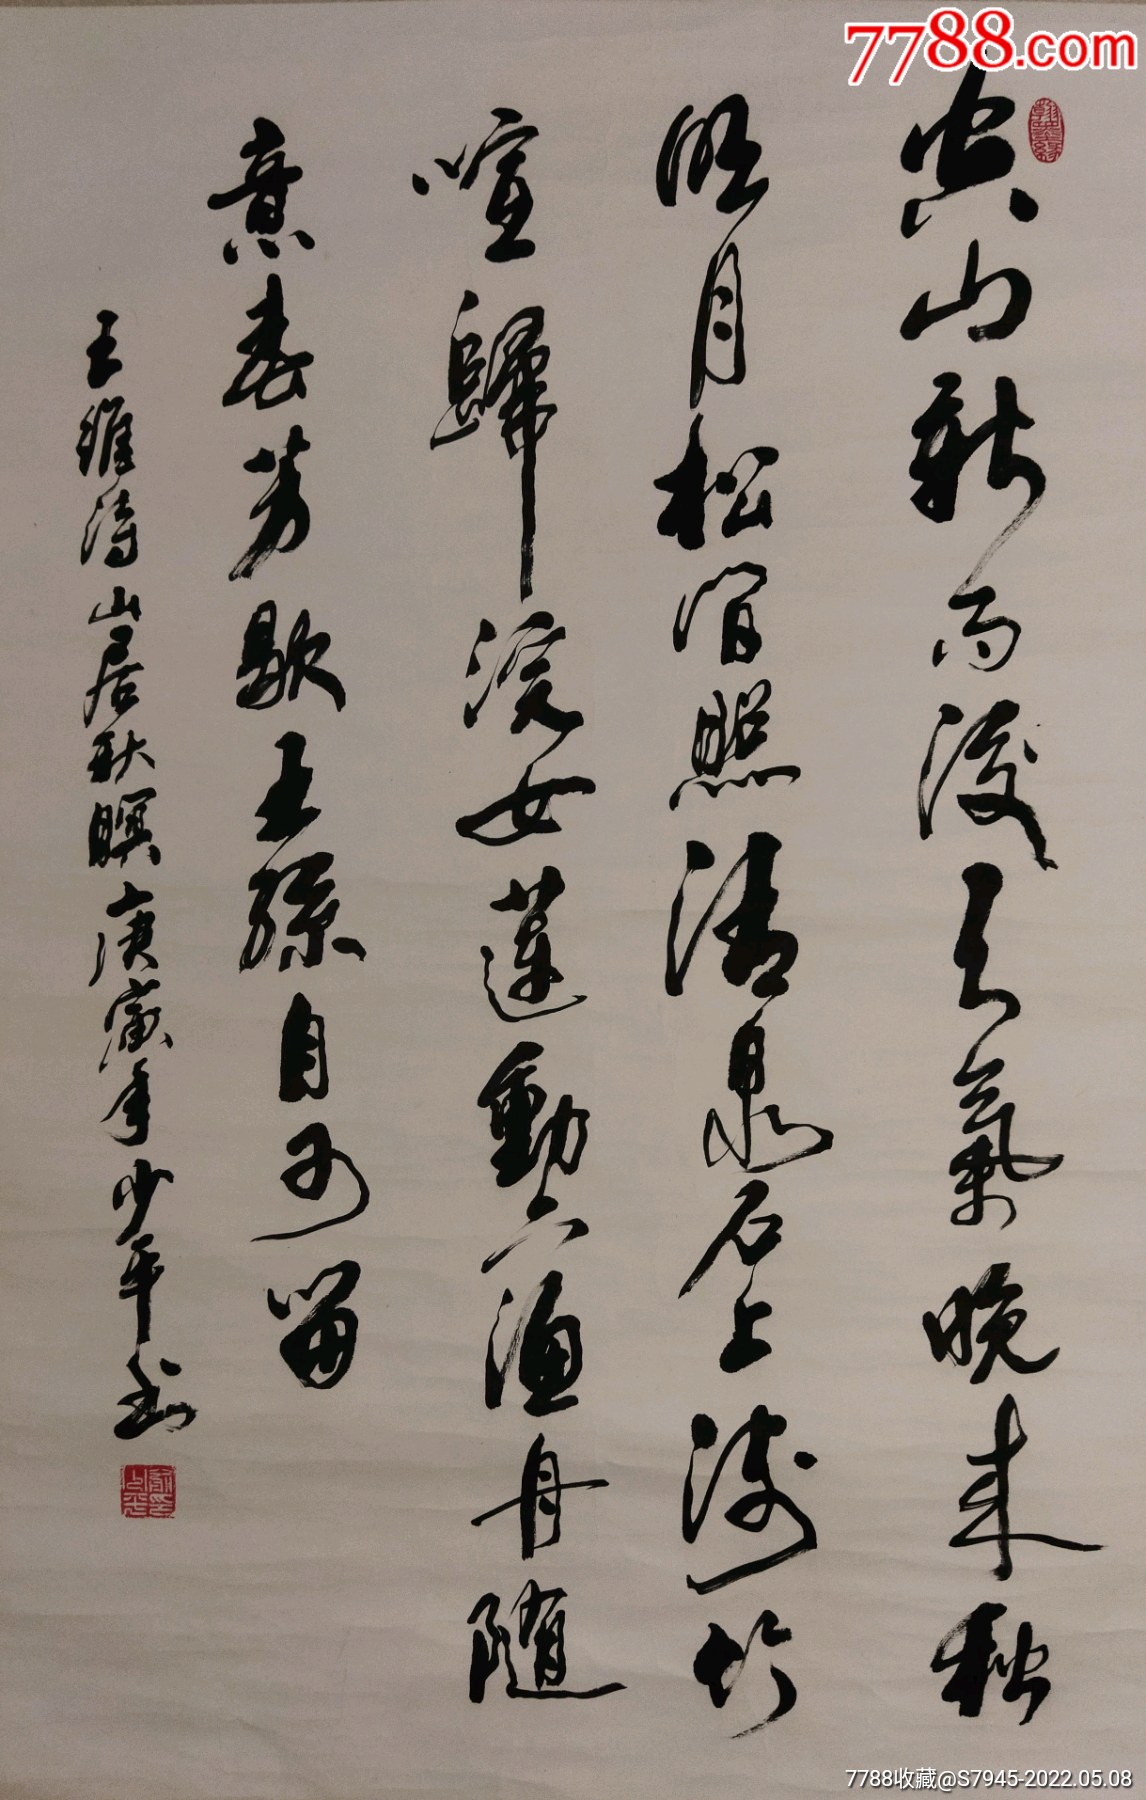 7788.com
空山新雨後天氣晚来秋
明月松間照清泉石上流竹
喧歸浣女蓮動下漁舟随
意春芳歇王孫自可留
王維詩山居秋暝庚寅年少平书
翰墨緣
7788收藏@S7945-2022.05.08